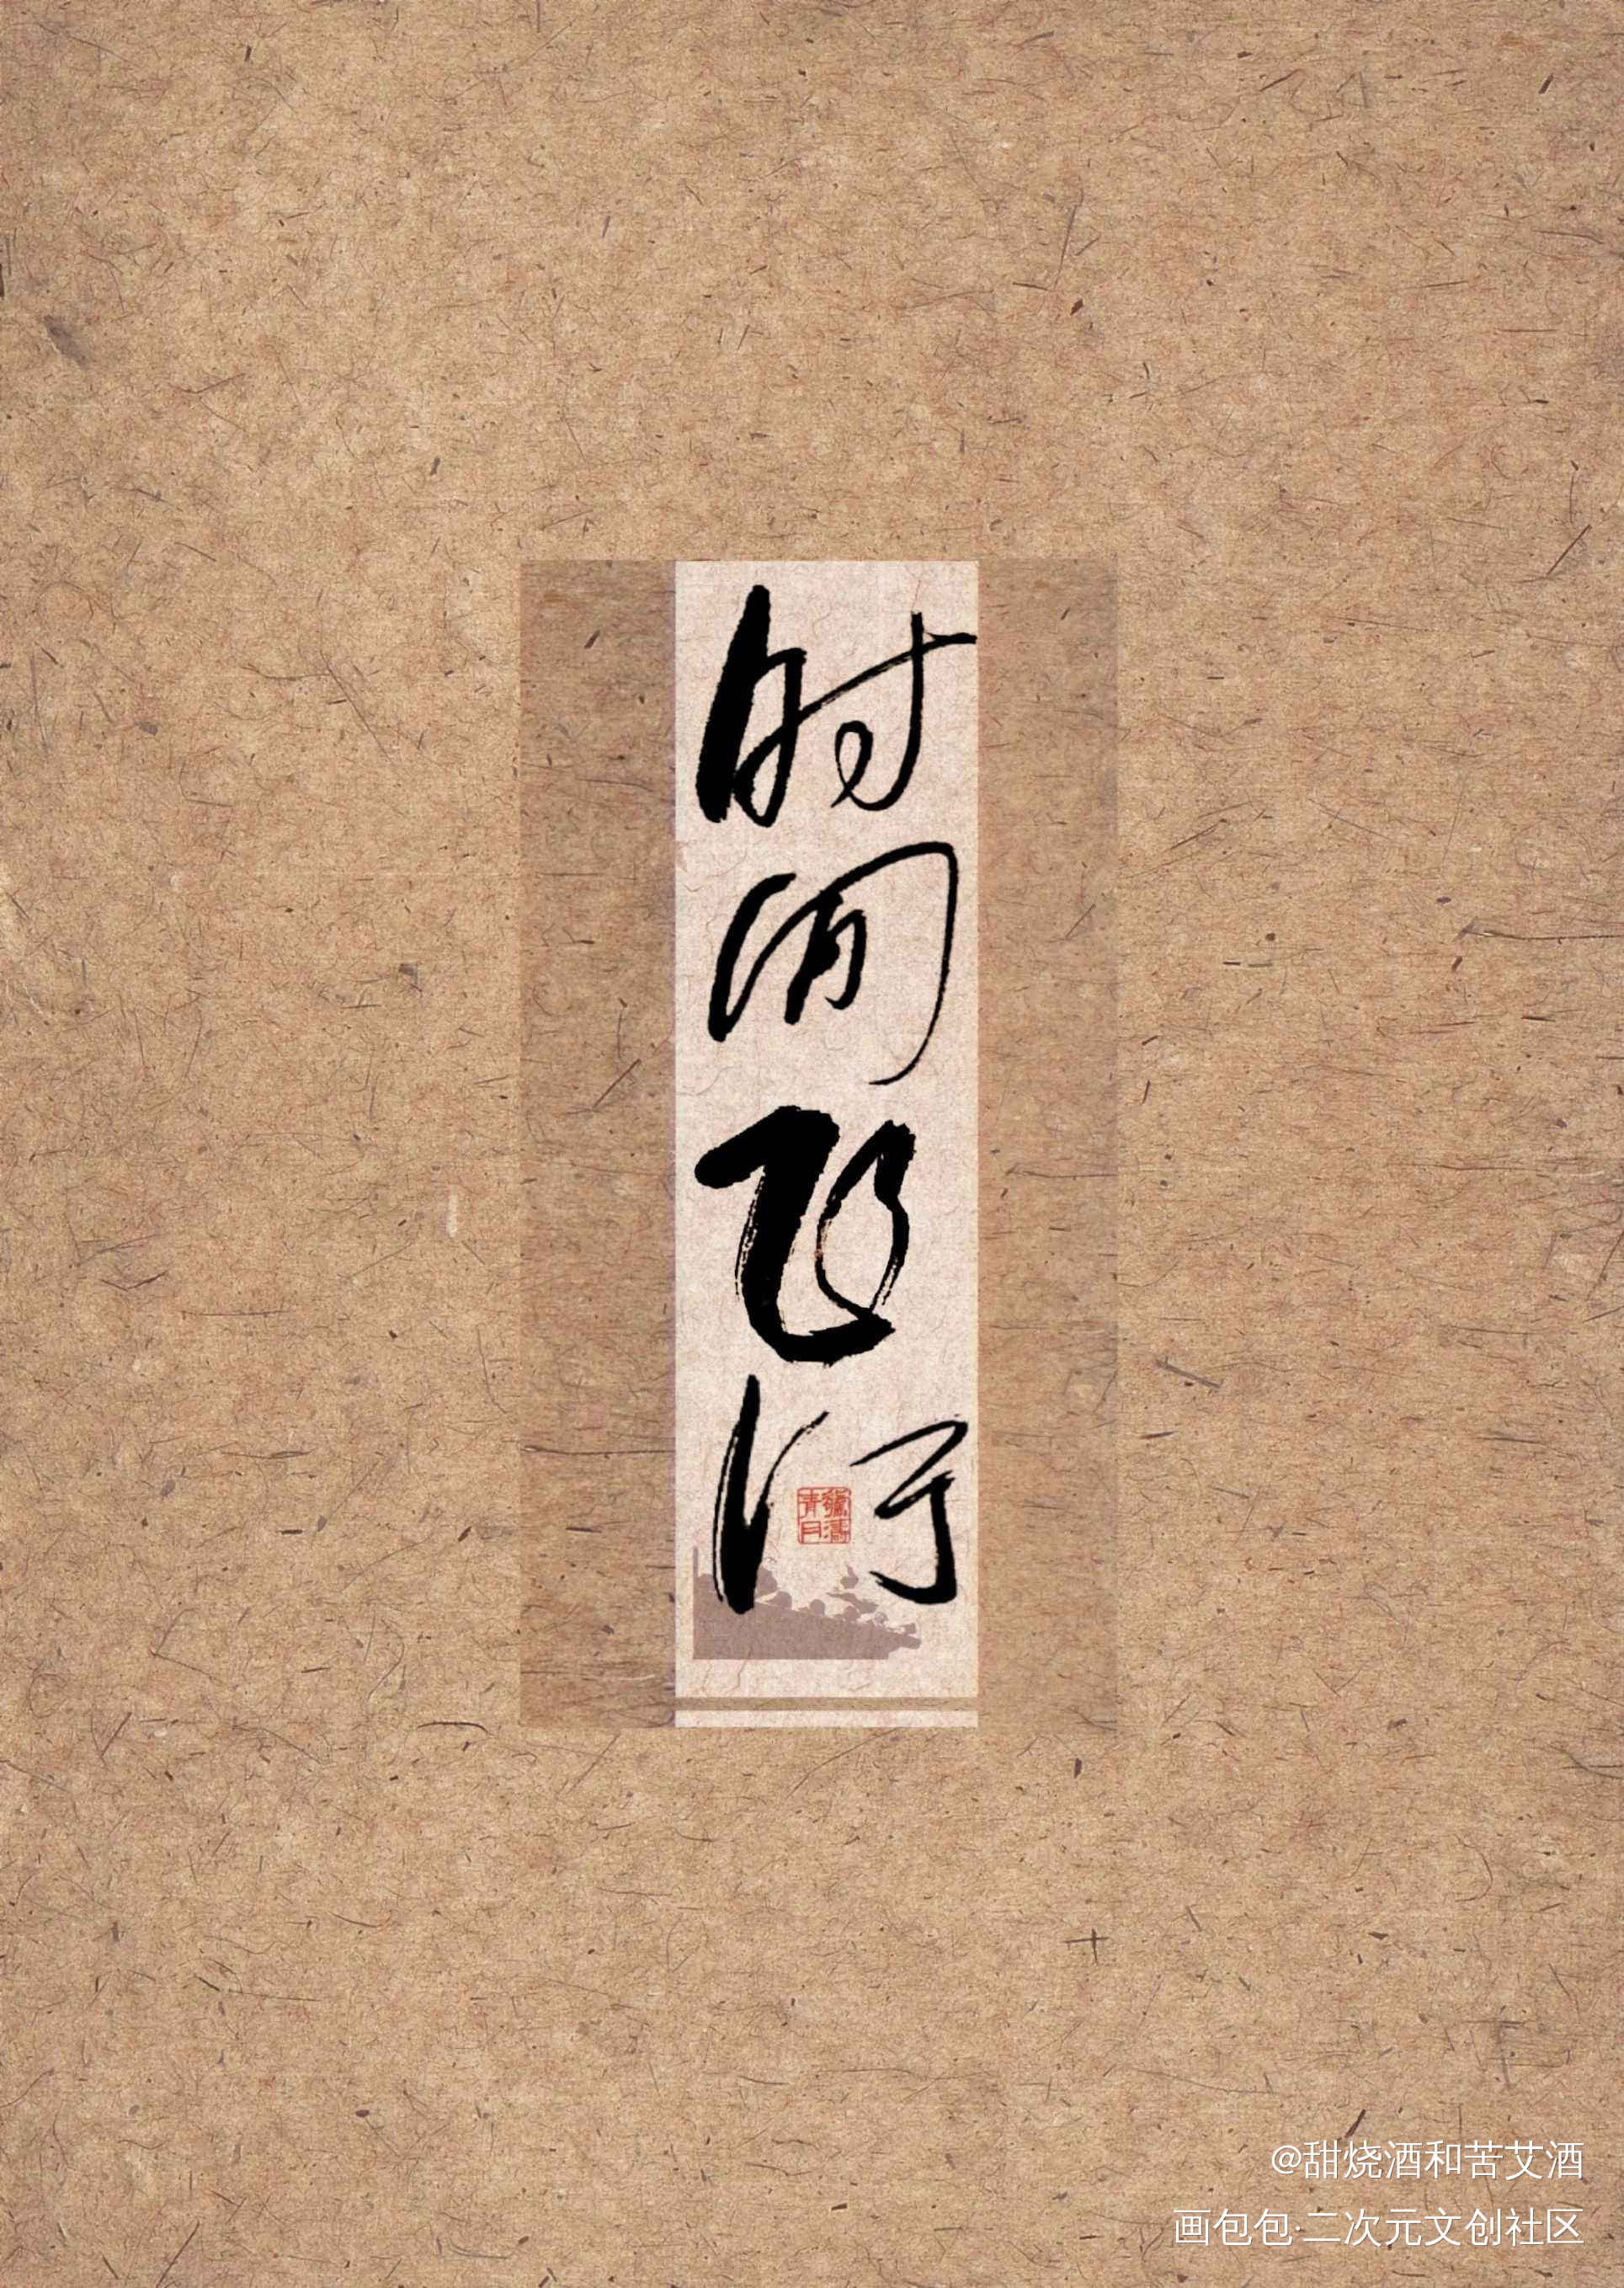 时间飞行
@甜烧酒和苦艾酒
画包包·二次元文创社区